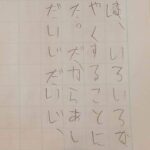 は、いろいろな
やくすることに
た。だからあし
だいじだいじ、